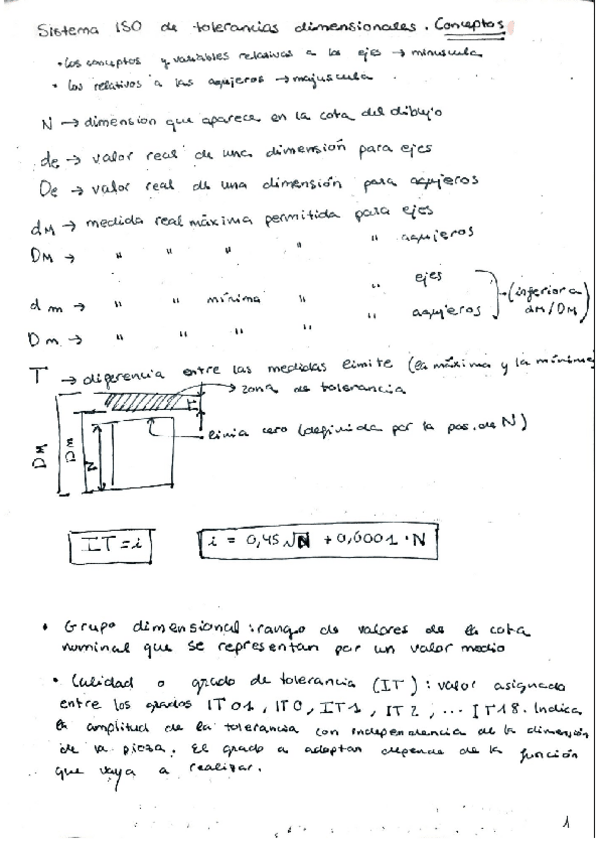 Sistema ISO de tolerancias dimensionales. Conceptos
• Los conceptos y variables relativas a los ejes → minuscula
• Los relativos a las agujeros → majuscula
N → dimension que aparece en la cota del dibujo
de → valor real de una dimensión para ejes
De → valor real de una dimensión para agujeros
dM → medida real máxima permitida para ejes
DM → " " " " " agujeros
dm → " " mínima " " ejes
Dm → " " " " " agujeros
(inferior a dM/DM)
T → diferencia entre las medidas limite (la máxima y la mínima)
zona de tolerancia
IT
linia cero (definida por la pos. de N)
DM
Dm
N
IT = i
i = 0,45 √N + 0,0001 · N
• Grupo dimensional : rango de valores de la cota
nominal que se representan por un valor medio
• Calidad o grado de tolerancia (IT) : valor asignado
entre los grados IT01, IT0, IT1, IT2, ... IT18. Indica
la amplitud de la tolerancia con independencia de la dimensión
de la pieza. El grado a adoptar depende de la función
que vaya a realizar.
1